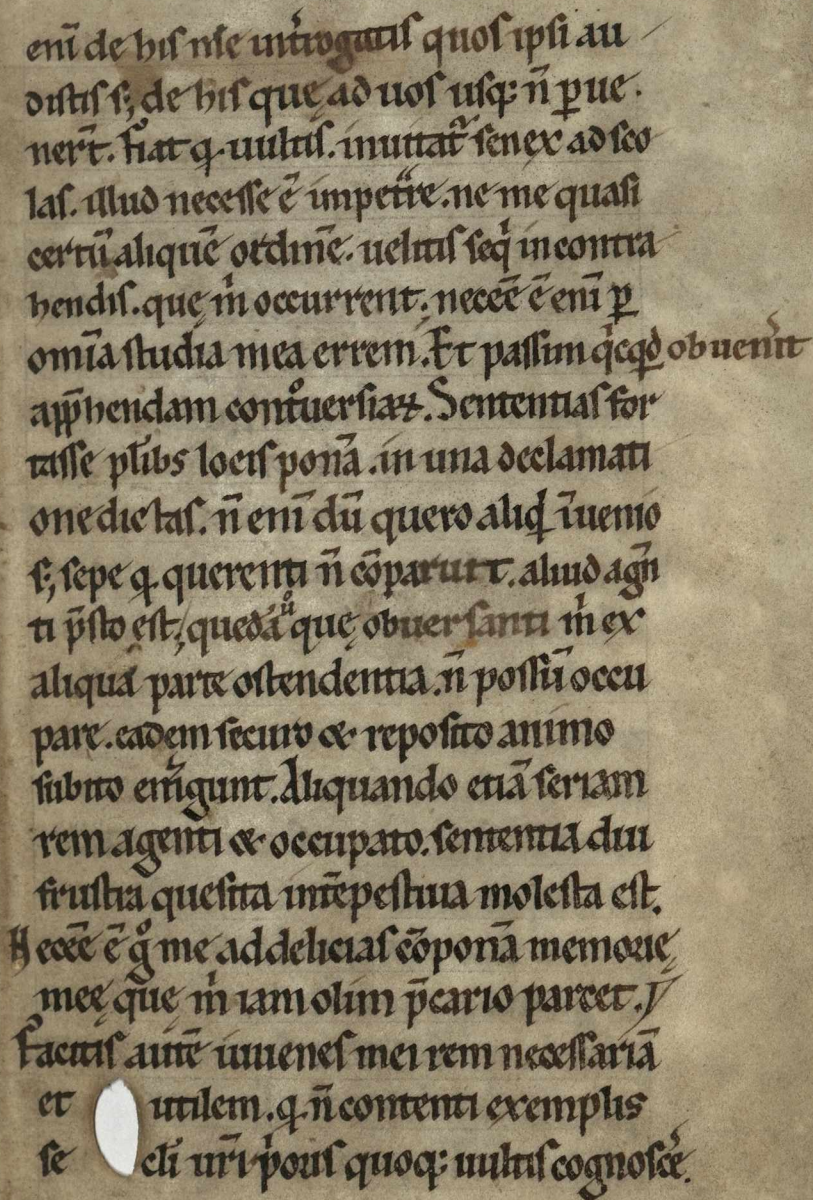 eni᷅ de his nr̄e int̓rogatis quos ipsi au
distis s; de his quę ad uos usq; n̄ ꝑue.
nert̄. fiat q᷒ uultis. inuitat᷑ senex ad sco
las. illud necesse ē impetᷓre. ne me quasi
certū aliquē ordinē. uelitis seqͥ in contra
hendis. quę mͥ occurrent. necēe ē eni᷅ ꝑ
omīa studia mea errem. Et passim qͥcqͥd obuen̓it
app̄hendam contͦuersiaꝝ. Sententias for
tasse plīb᷒ locis ponā. in una declamati
one dictas. n̄ eni᷅ dū quero aliqͥd īuenio
s; sepe q᷒ querenti n̄ cōparuit. aliud agn̄
ti p̄sto est; quedā uͦ quę obuersanti mͥ ex
aliqua parte ostendentia. n̄ possū occu
pare. eadem securo & reposito animo
subito em̓gunt. Aliquando etiā seriam
rem agenti & occupato. sententia diu
frustra quesita intēpestiua molesta est.
Necēe ē gͦ me ad delicias cōponā memorię
meę quę mͥ iam olim p̄cario paret.
Facitis autē iuuenes mei rem necessariā
et utilem. q᷒ n̄ contenti exemplis
se cli᷅ ur̄i pͥoris quoq; uultis cognosc̓e.